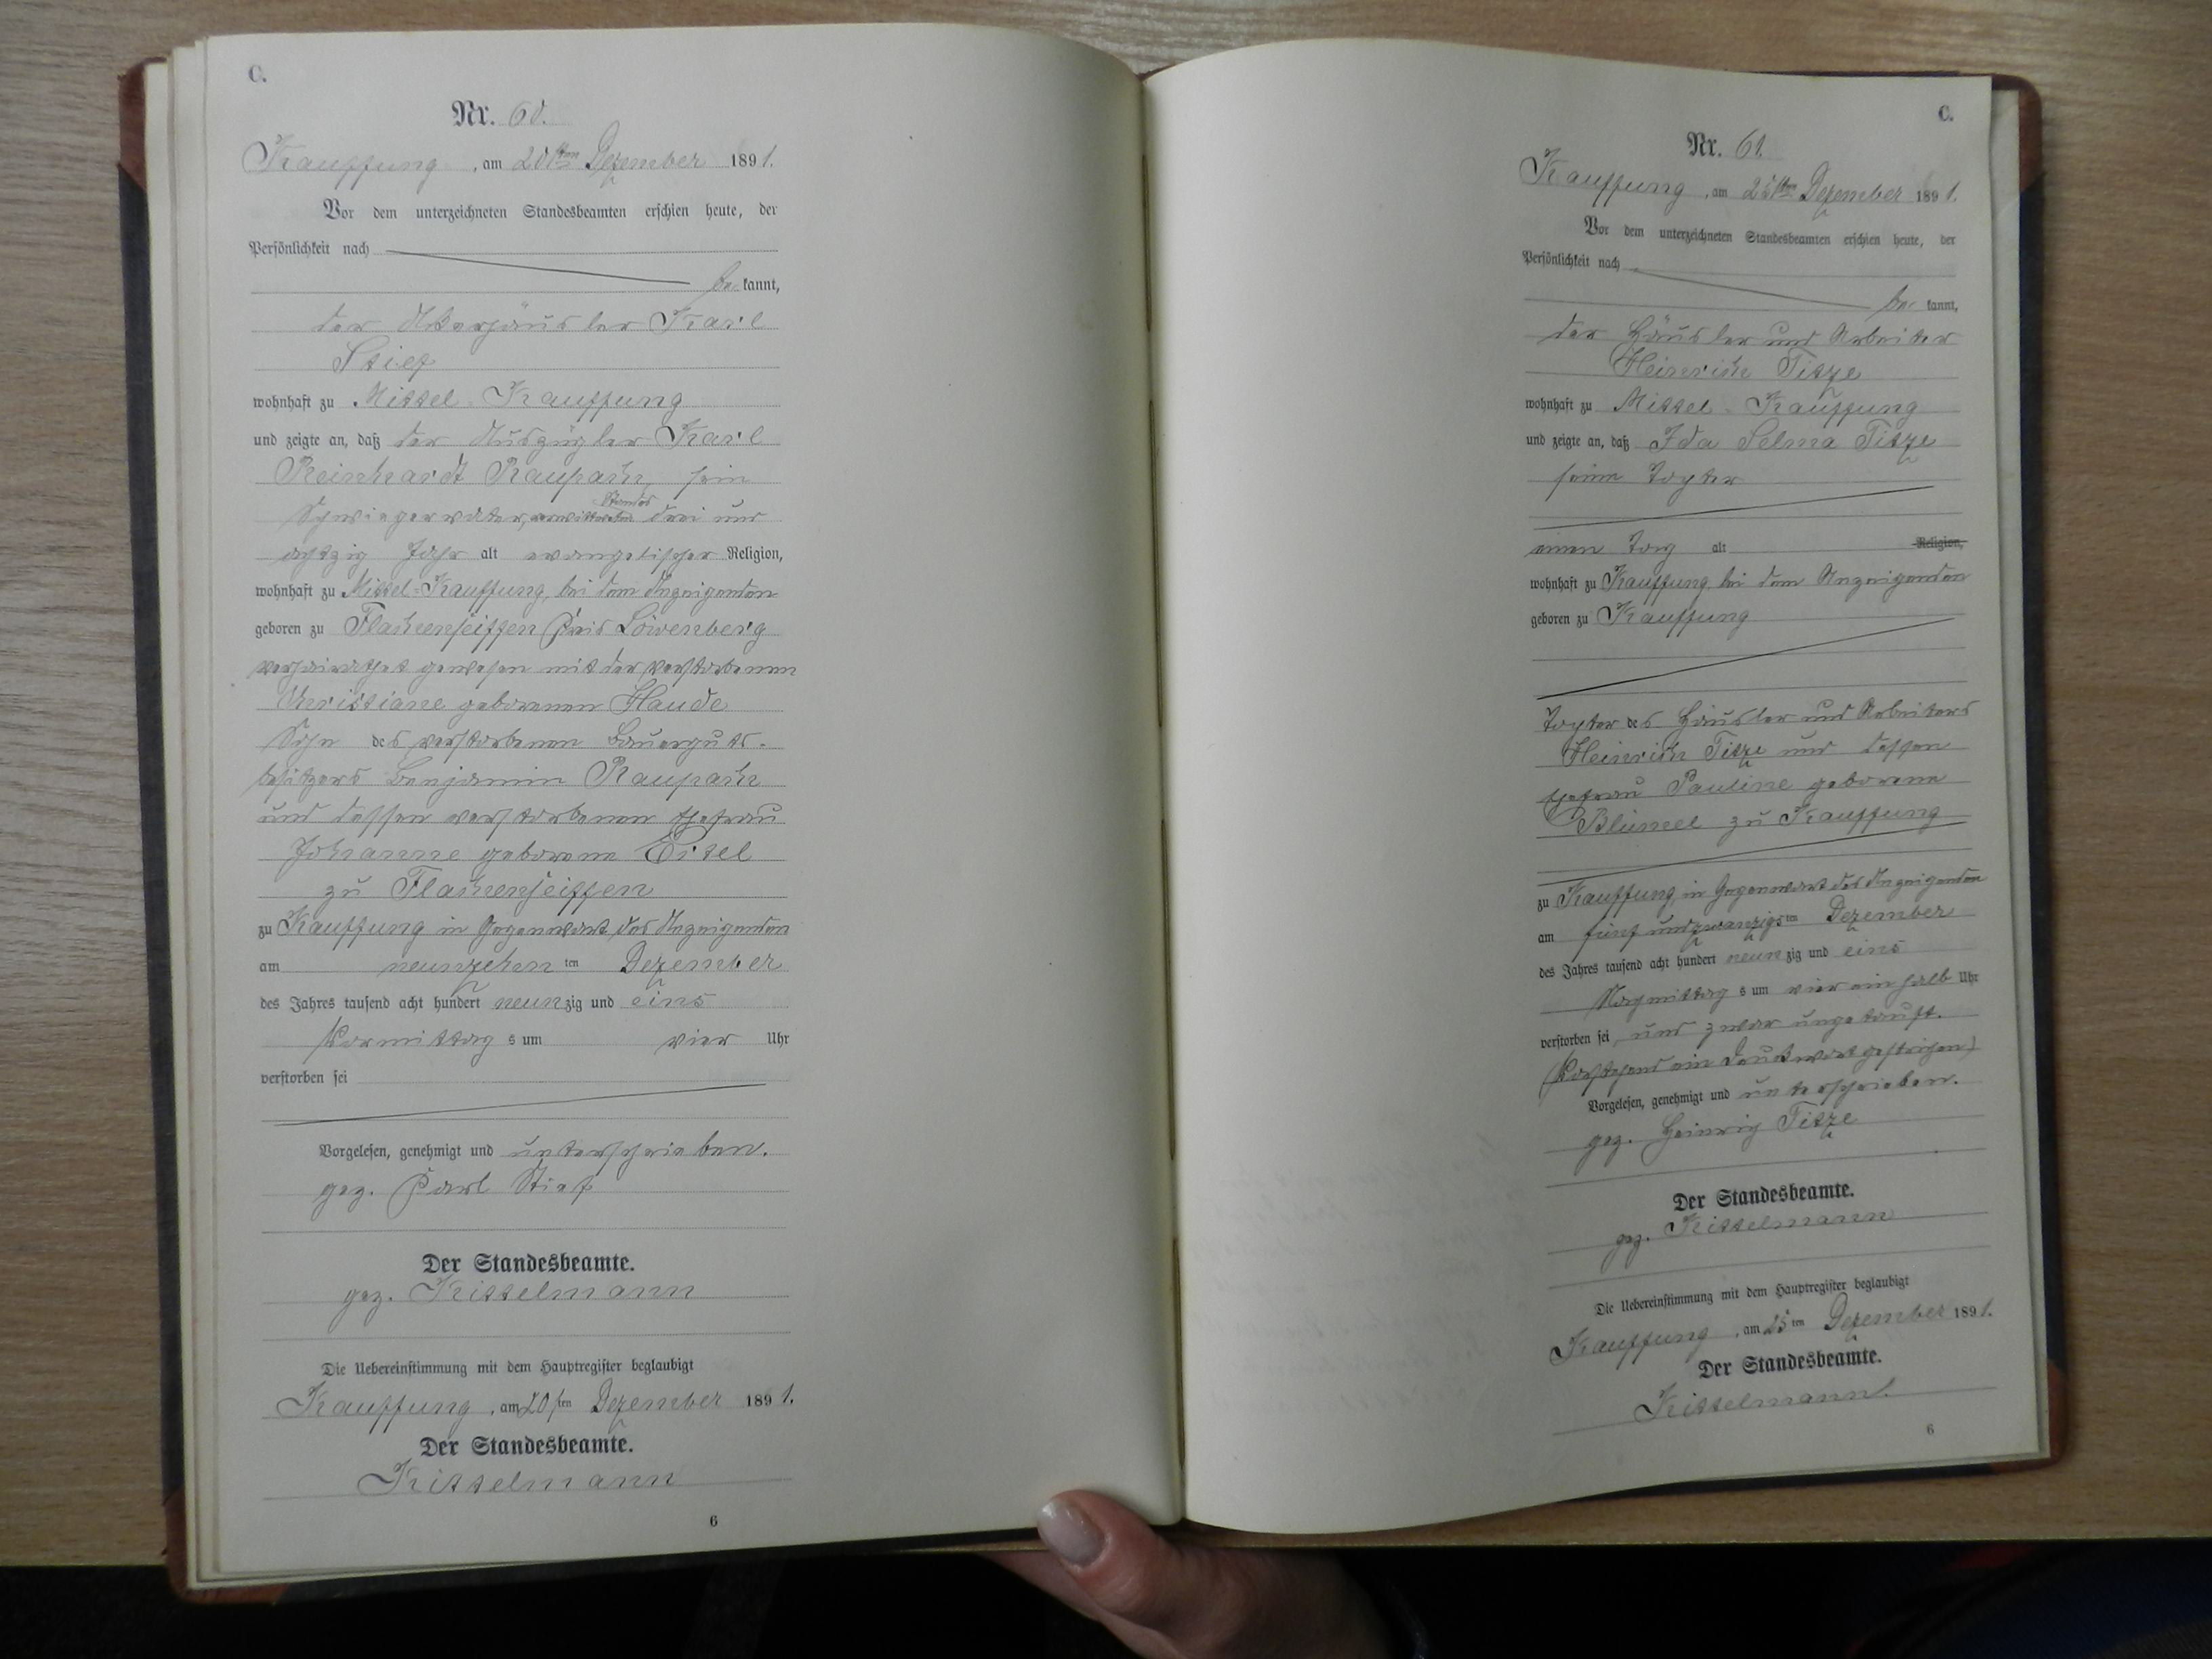 C.
Nr. 60.
Kauffung, am 20ten Dezember 1891.
Vor dem unterzeichneten Standesbeamten erschien heute, der
Persönlichkeit nach
be kannt,
der Ackerhäusler Karl
Stief
wohnhaft zu Mittel Kauffung
und zeigte an, daß der Auszügler Karl
Reinhardt Raupach, sein
Schwiegervater, Standes drei und
achtzig Jahr alt evangelischer Religion,
wohnhaft zu Mittel-Kauffung, bei dem Anzeigenden
geboren zu Flachenseiffen Kreis Löwenberg
verheirathet gewesen mit der verstorbenen
Christiane geborenen Haude
Sohn des verstorbenen Bauerguts-
besitzers Benjamin Raupach
und dessen verstorbenen Ehefrau
Johanne geborene Eitel
zu Flachenseiffen
zu Kauffung in Gegenwart des Anzeigenden
am neunzehn ten Dezember
des Jahres tausend acht hundert neunzig und eins
Vormittag s um vier Uhr
verstorben sei
Vorgelesen, genehmigt und unterschrieben.
gez. Karl Stief
Der Standesbeamte.
gez. Kittelmann
Die Uebereinstimmung mit dem Hauptregister beglaubigt
Kauffung, am 20sten Dezember 1891.
Der Standesbeamte.
Kittelmann
6
C.
Nr. 61.
Kauffung, am 25ten Dezember 1891.
Vor dem unterzeichneten Standesbeamten erschien heute, der
Persönlichkeit nach
be kannt,
der Häusler und Arbeiter
Heinrich Titze
wohnhaft zu Mittel-Kauffung
und zeigte an, daß Ida Selma Titze
seine Tochter
einen Tag alt Religion,
wohnhaft zu Kauffung, bei dem Anzeigenden
geboren zu Kauffung
Tochter des Häusler und Arbeiters
Heinrich Titze und dessen
Ehefrau Pauline geborene
Blümel zu Kauffung
zu Kauffung, in Gegenwart des Anzeigenden
am fünfundzwanzigsten Dezember
des Jahres tausend acht hundert neunzig und eins
Nachmittag s um vier ein halb Uhr
verstorben sei, und zwar ungetauft.
(Vorstehend ein Druckwort gestrichen)
Vorgelesen, genehmigt und unterschrieben.
gez. Heinrich Titze
Der Standesbeamte.
gez. Kittelmann
Die Uebereinstimmung mit dem Hauptregister beglaubigt
Kauffung, am 25ten Dezember 1891.
Der Standesbeamte.
Kittelmann.
6